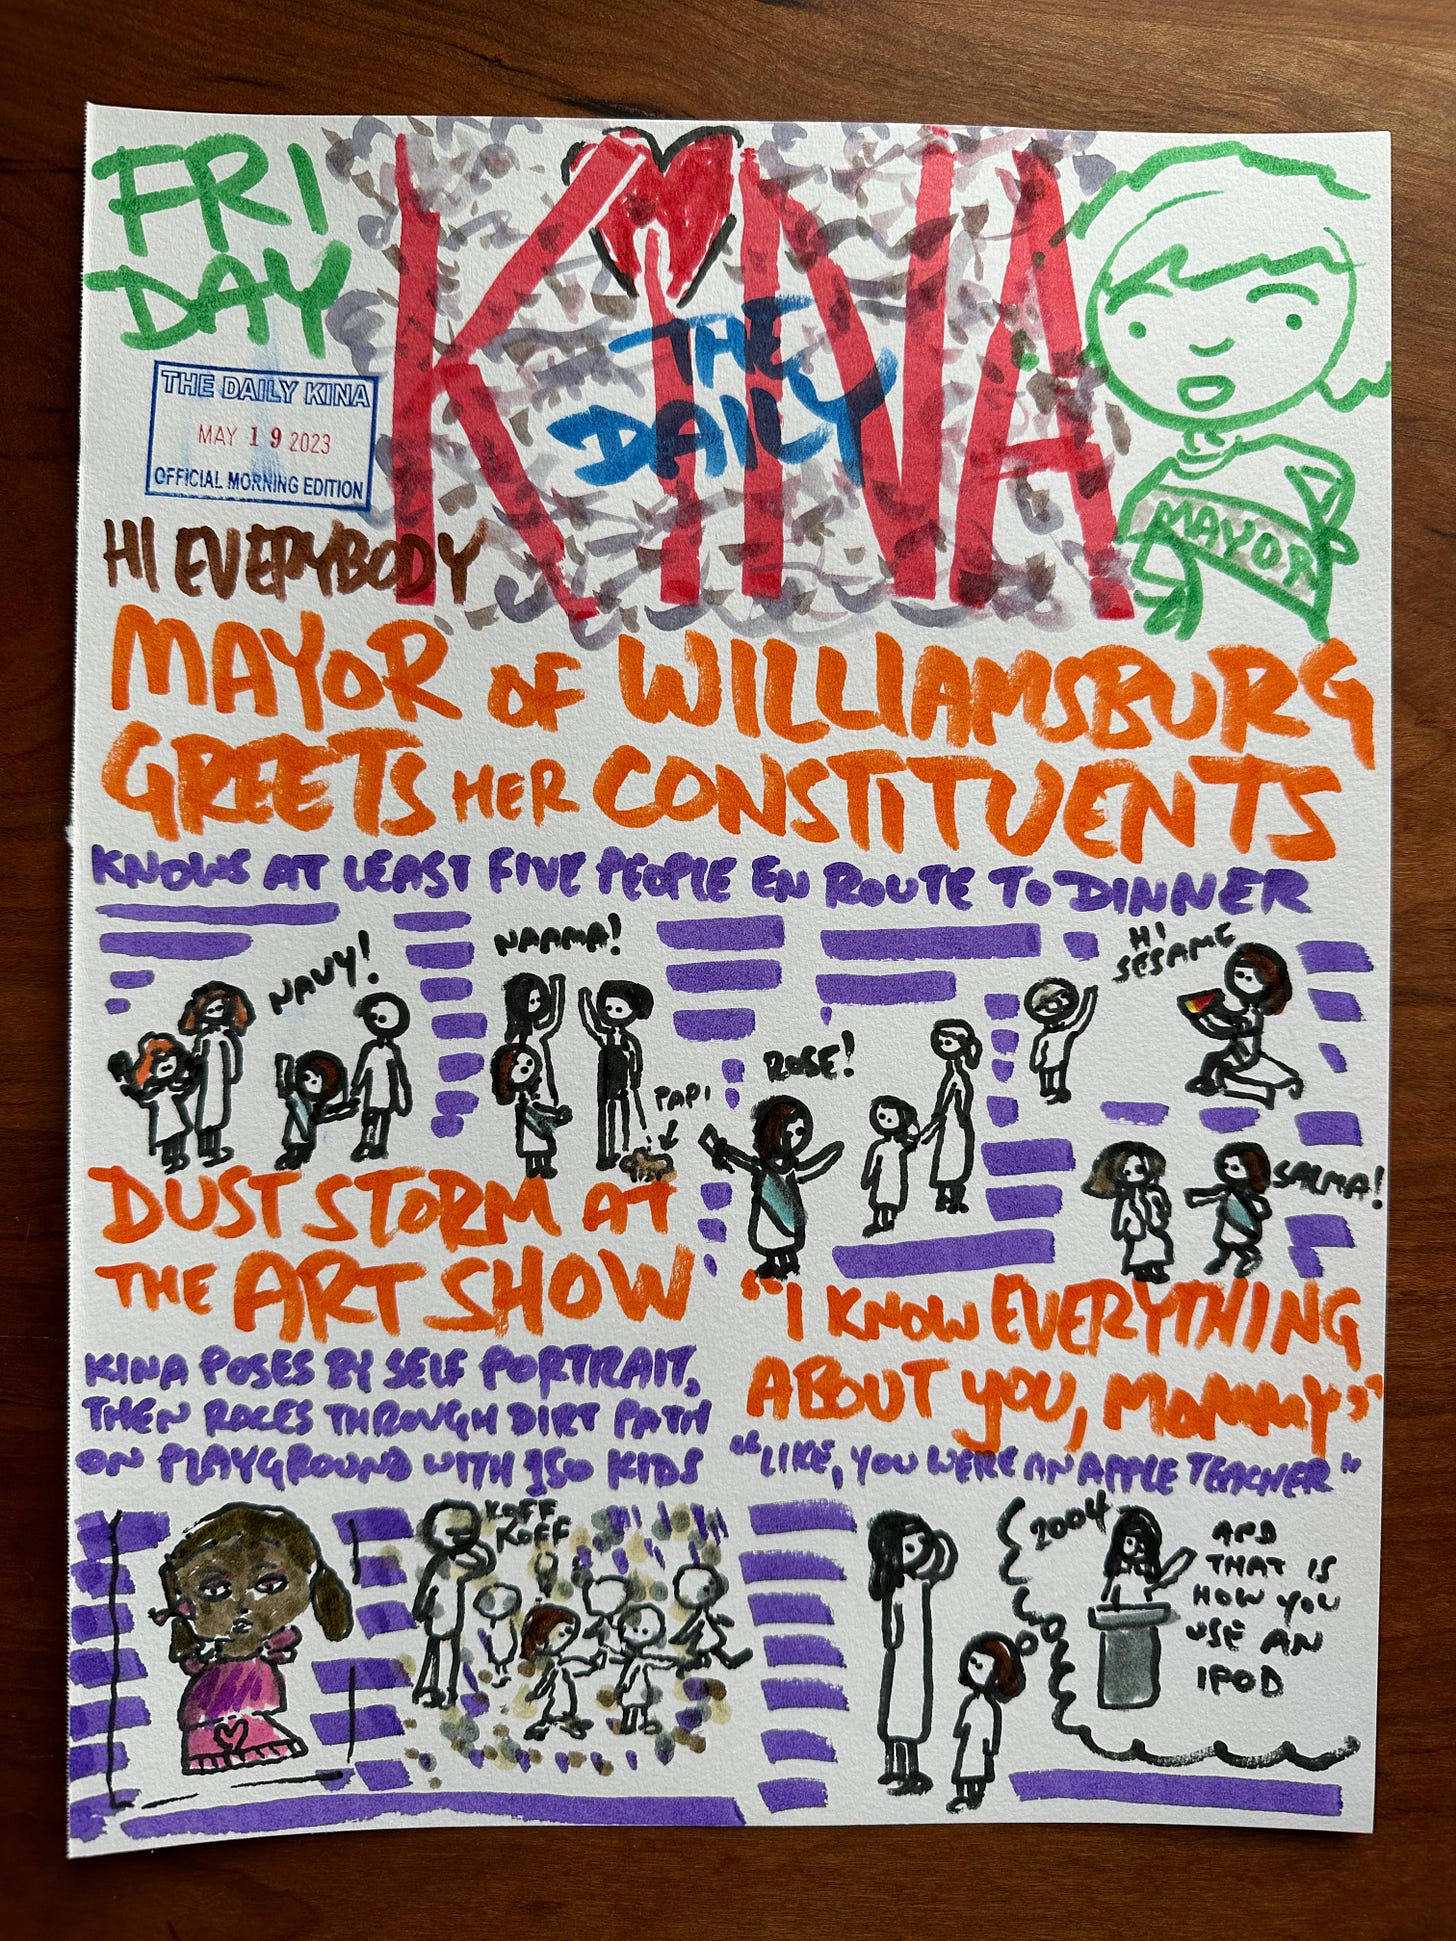 FRI
DAY
KINA
THE
DAILY
THE DAILY KINA
MAY 19 2023
OFFICIAL MORNING EDITION
MAYOR
HI EVERYBODY
MAYOR OF WILLIAMSBURG
GREETS HER CONSTITUENTS
KNOWS AT LEAST FIVE PEOPLE EN ROUTE TO DINNER
NAVY!
NAAMA!
PAPI
ROSE!
HI
SESAME
SALMA!
DUST STORM AT
THE ART SHOW
KINA POSES BY SELF PORTRAIT,
THEN RACES THROUGH DIRT PATH
ON PLAYGROUND WITH 150 KIDS
KOFF
KOFF
"I KNOW EVERYTHING
ABOUT YOU, MOMMY"
"LIKE, YOU WERE AN APPLE TEACHER"
2004
AND
THAT IS
HOW YOU
USE AN
IPOD